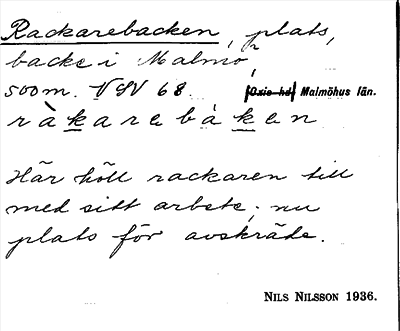 Rackarebacken, plats,
backe i Malmö,
500 m. VSV 68. [Oxie hd] Malmöhus län.
ràkarebàken
Här höll rackaren till
med sitt arbete; nu
plats för avskräde.
NILS NILSSON 1936.